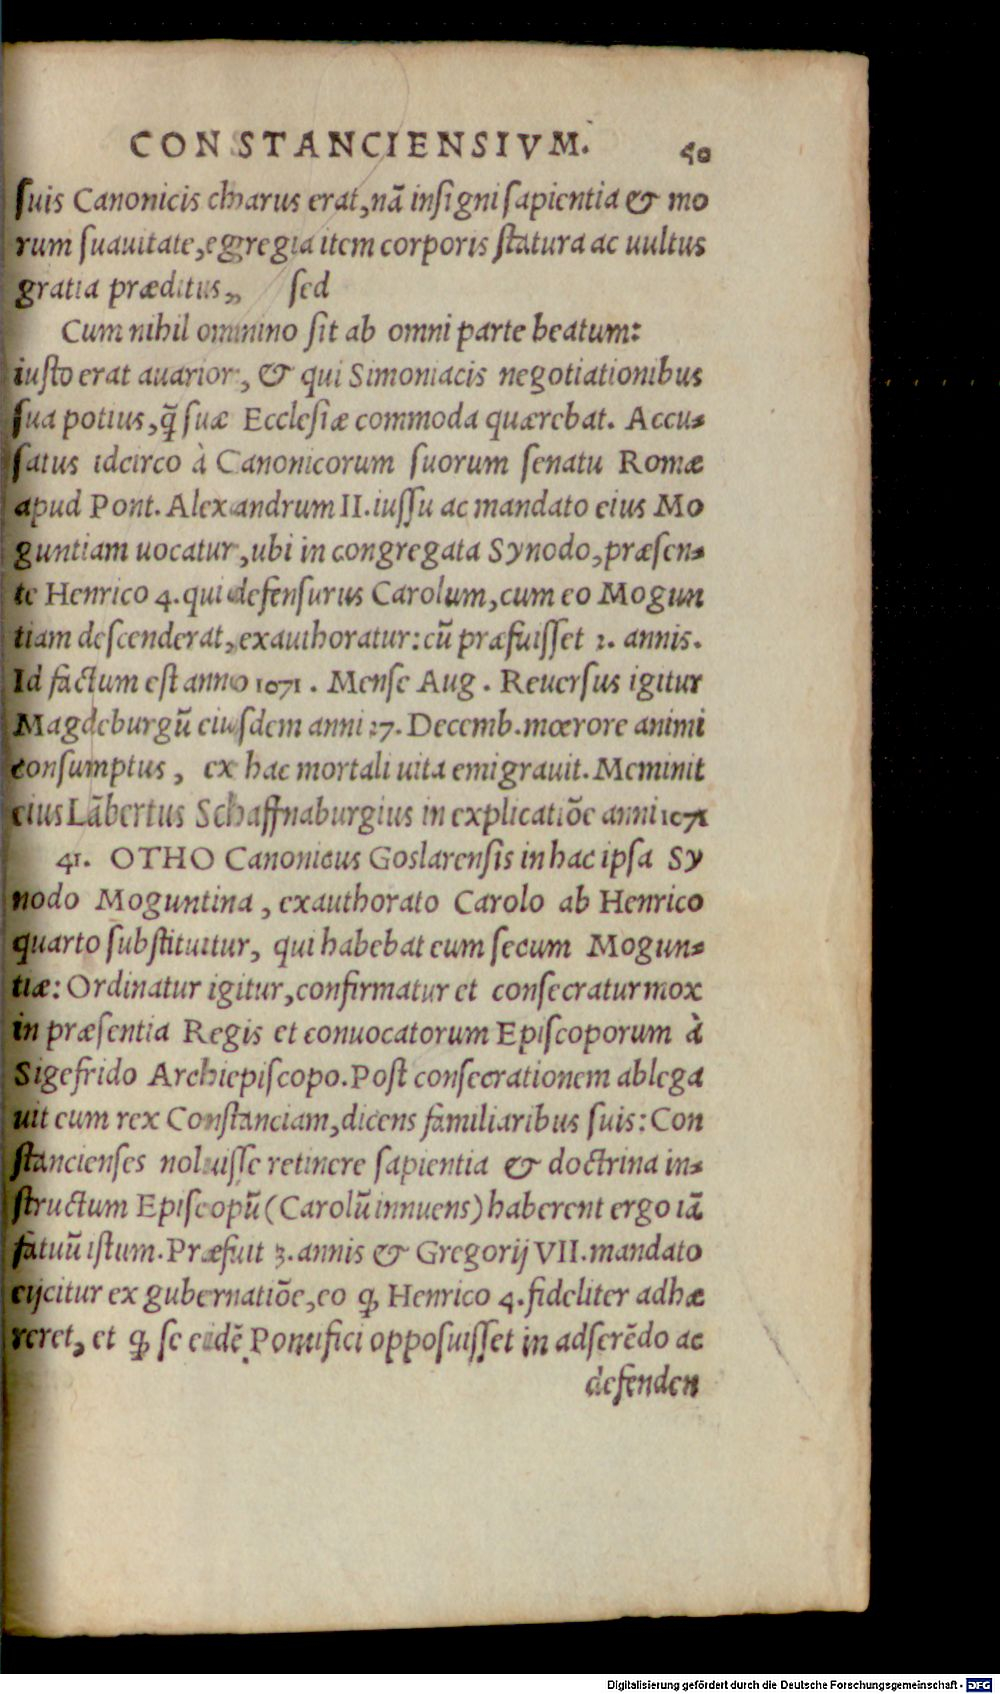 CONSTANCIENSIVM. 50
suis Canonicis charus erat, nã insigni sapientia & mo
rum suauitate, egregia item corporis statura ac uultus
gratia præditus, sed
Cum nihil omnino sit ab omni parte beatum:
iusto erat auarior, & qui Simoniacis negotiationibus
sua potius, q̃ suæ Ecclesiæ commoda quærebat. Accu-
satus idcirco à Canonicorum suorum senatu Romæ
apud Pont. Alexandrum II. iussu ac mandato eius Mo
guntiam uocatur, ubi in congregata Synodo, præsen-
te Henrico 4. qui defensurus Carolum, cum eo Mogun
tiam descenderat, exauthoratur: cũ præfuisset 2. annis.
Id factum est anno 1071. Mense Aug. Reuersus igitur
Magdeburgũ eiusdem anni 27. Decemb. mœrore animi
consumptus, ex hac mortali uita emigrauit. Meminit
eius Lãbertus Schaffnaburgius in explicatiõe anni 1071
41. OTHO Canonicus Goslarensis in hac ipsa Sy
nodo Moguntina, exauthorato Carolo ab Henrico
quarto substituitur, qui habebat eum secum Mogun-
tiæ: Ordinatur igitur, confirmatur et consecratur mox
in præsentia Regis et conuocatorum Episcoporum à
Sigefrido Archiepiscopo. Post consecrationem ablega
uit eum rex Constanciam, dicens familiaribus suis: Con
stancienses noluisse retinere sapientia & doctrina in-
structum Episcopũ (Carolũ innuens) haberent ergo iã
fatuũ istum. Præfuit 3. annis & Gregorij VII. mandato
eijcitur ex gubernatiõe, eo ꝙ Henrico 4. fideliter adhæ
reret, et ꝙ se eidẽ Pontifici opposuisset in adserẽdo ac
defenden
Digitalisierung gefördert durch die Deutsche Forschungsgemeinschaft - DFG